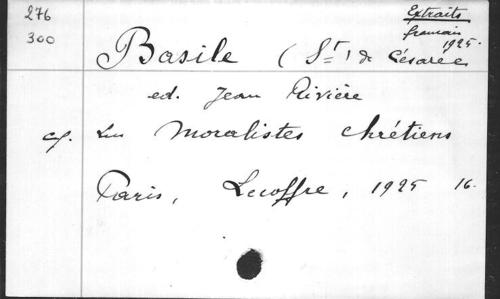 276
300
Extraits
français
1925.
Basile (St) de Césarée
ed. Jean Rivière
cf. Les Moralistes chrétiens
Paris, Lecoffre, 1925 16.